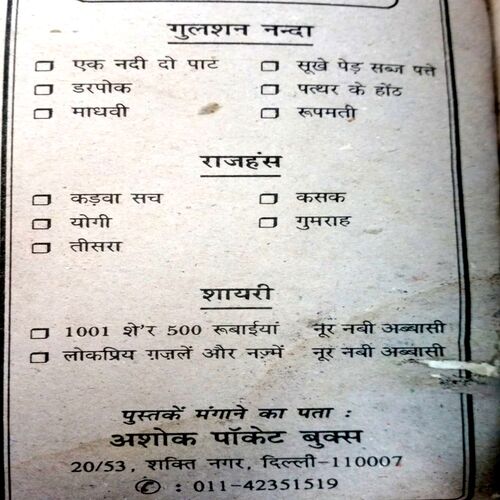 गुलशन नन्दा
एक नदी दो पाट सूखे पेड़ सब्ज पत्ते
डरपोक पत्थर के होंठ
माधवी रूपमती
राजहंस
कड़वा सच कसक
योगी गुमराह
तीसरा
शायरी
1001 शे'र 500 रूबाईयां नूर नबी अब्बासी
लोकप्रिय ग़ज़लें और नज़्में नूर नबी अब्बासी
पुस्तकें मंगाने का पता :
अशोक पॉकेट बुक्स
20/53, शक्ति नगर, दिल्ली-110007
✆ : 011-42351519